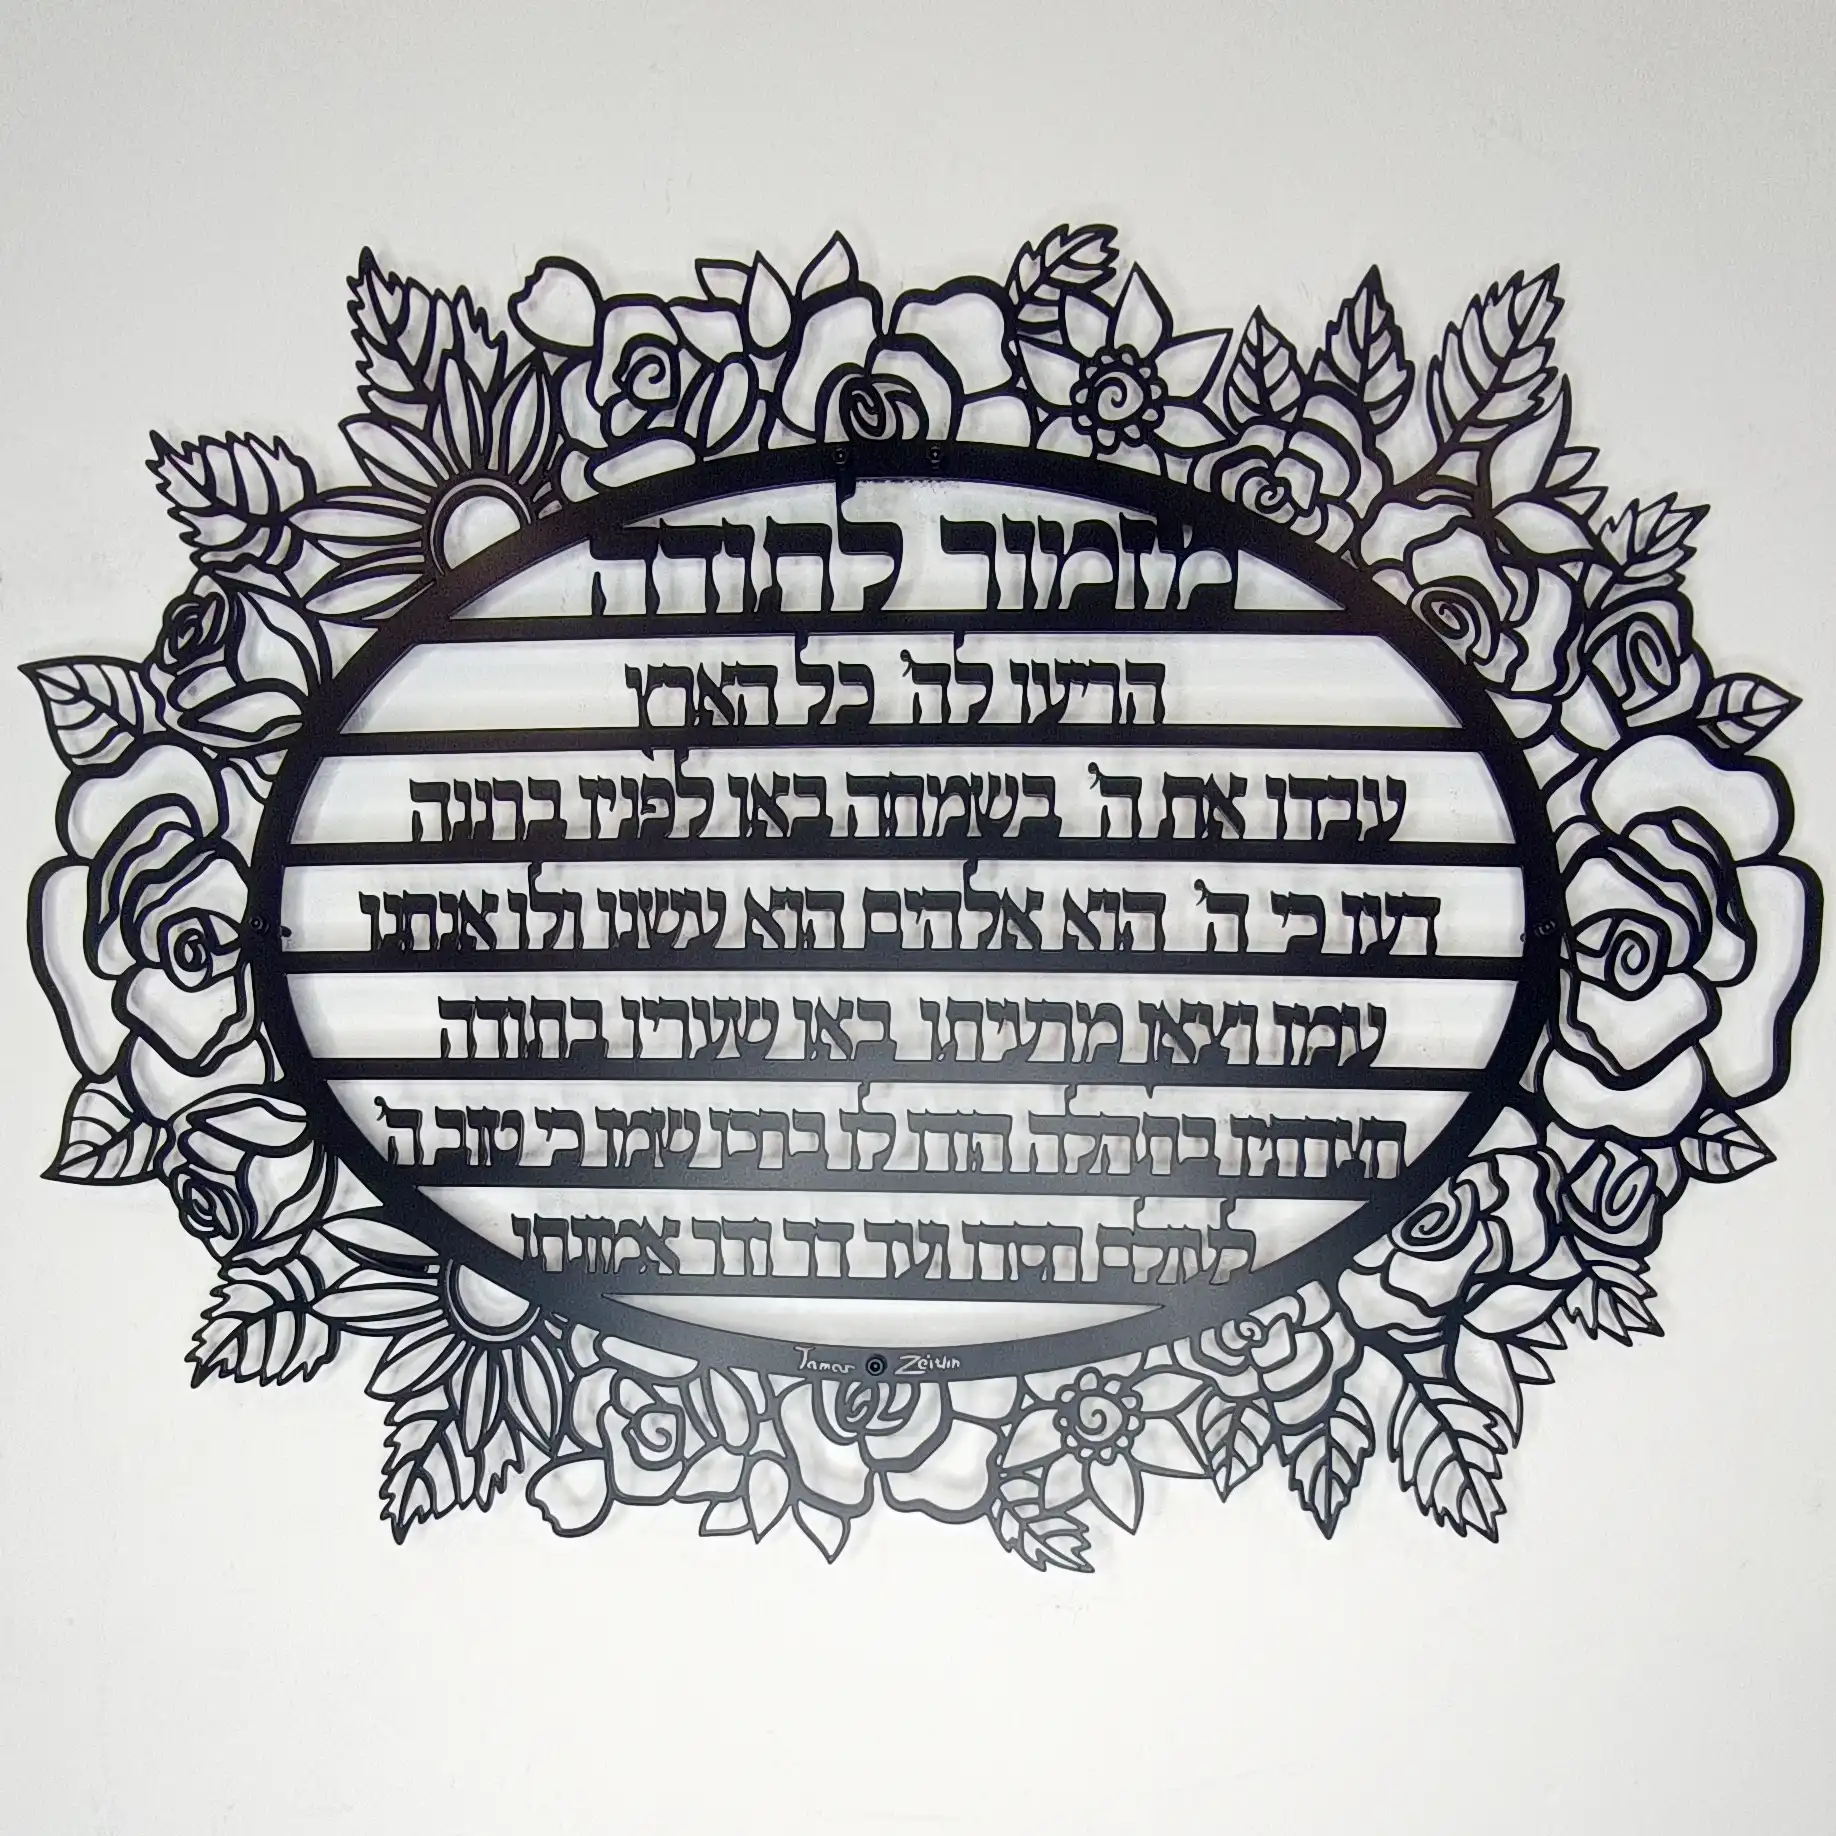 מזמור לתודה
הריעו לה' כל הארץ
עבדו את ה' בשמחה באו לפניו ברננה
דעו כי ה' הוא אלהים הוא עשנו ולו אנחנו
עמו וצאן מרעיתו באו שעריו בתודה
חצרתיו בתהלה הודו לו ברכו שמו כי טוב ה'
לעולם חסדו ועד דר ודר אמונתו
Tamar Zeitlin